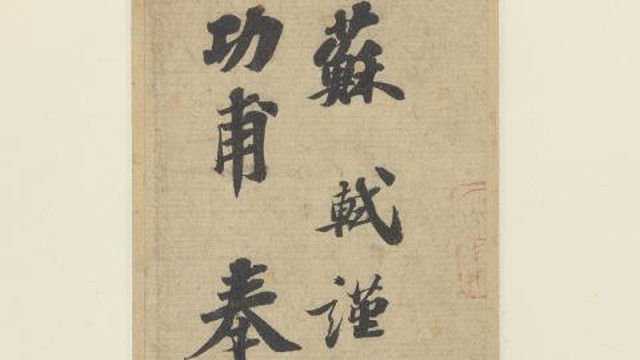 蘇軾謹
功甫奉